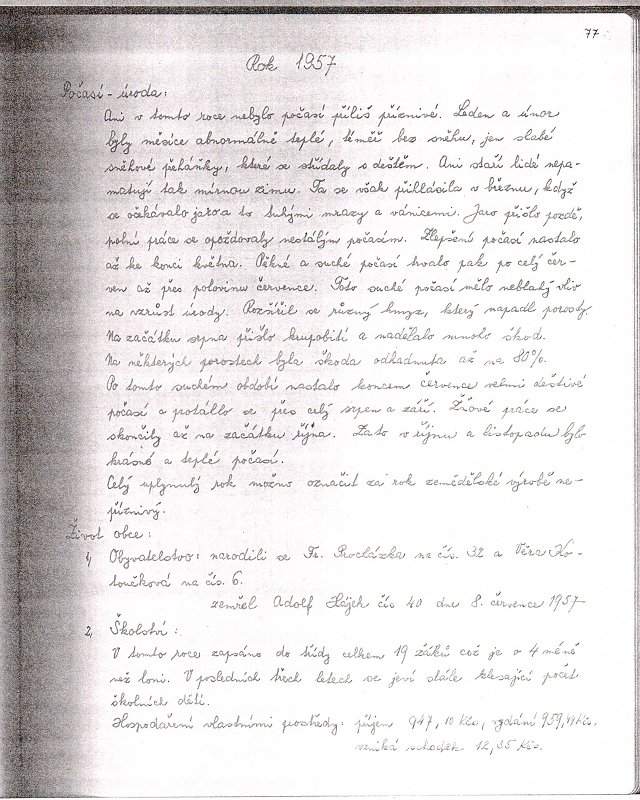 77
Rok 1957
Počasí - úroda:
Ani v tomto roce nebylo počasí příliš příznivé. Leden a únor
byly měsíce abnormálně teplé, téměř bez sněhu, jen slabé
sněhové přeháňky, které se střídaly s deštěm. Ani staří lidé nepa-
matují tak mírnou zimu. Ta se však přihlásila v březnu, když
se očekávalo jaro a to tuhými mrazy a vánicemi. Jaro přišlo pozdě,
polní práce se opožďovaly nestálým počasím. Zlepšení počasí nastalo
až ke konci května. Pěkné a suché počasí trvalo pak po celý čer-
ven až přes polovinu července. Toto suché počasí mělo neblahý vliv
na vzrůst úrody. Rozšířil se různý hmyz, který napadl porosty.
Na začátku srpna přišlo krupobití a nadělalo mnoho škod.
Na některých porostech byla škoda odhadnuta až na 80%.
Po tomto suchém období nastalo koncem července velmi deštivé
počasí a protáhlo se přes celý srpen a září. Žňové práce se
skončily až na začátku října. Zato v říjnu a listopadu bylo
krásné a teplé počasí.
Celý uplynulý rok možno označit za rok zemědělské výrobě ne-
příznivý.
Život obce:
1, Obyvatelstvo: narodili se Fr. Procházka na čís. 32 a Věra Ko-
toučková na čís. 6.
zemřel Adolf Hájek čís 40 dne 8. července 1957
2, Školství:
V tomto roce zapsáno do třídy celkem 19 žáků což je o 4 méně
než loni. V posledních třech letech se jeví stále klesající počet
školních dětí.
Hospodaření vlastními prostředky: příjem 947,10 Kčs, vydání 959,44 Kčs.
vzniká schodek 12,35 Kčs.